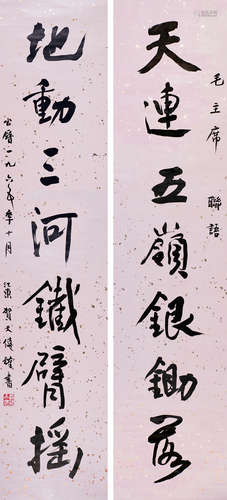 天連五嶺銀鋤落
毛主席聯語
地動三河鐵臂搖
公曆一九六五年十月